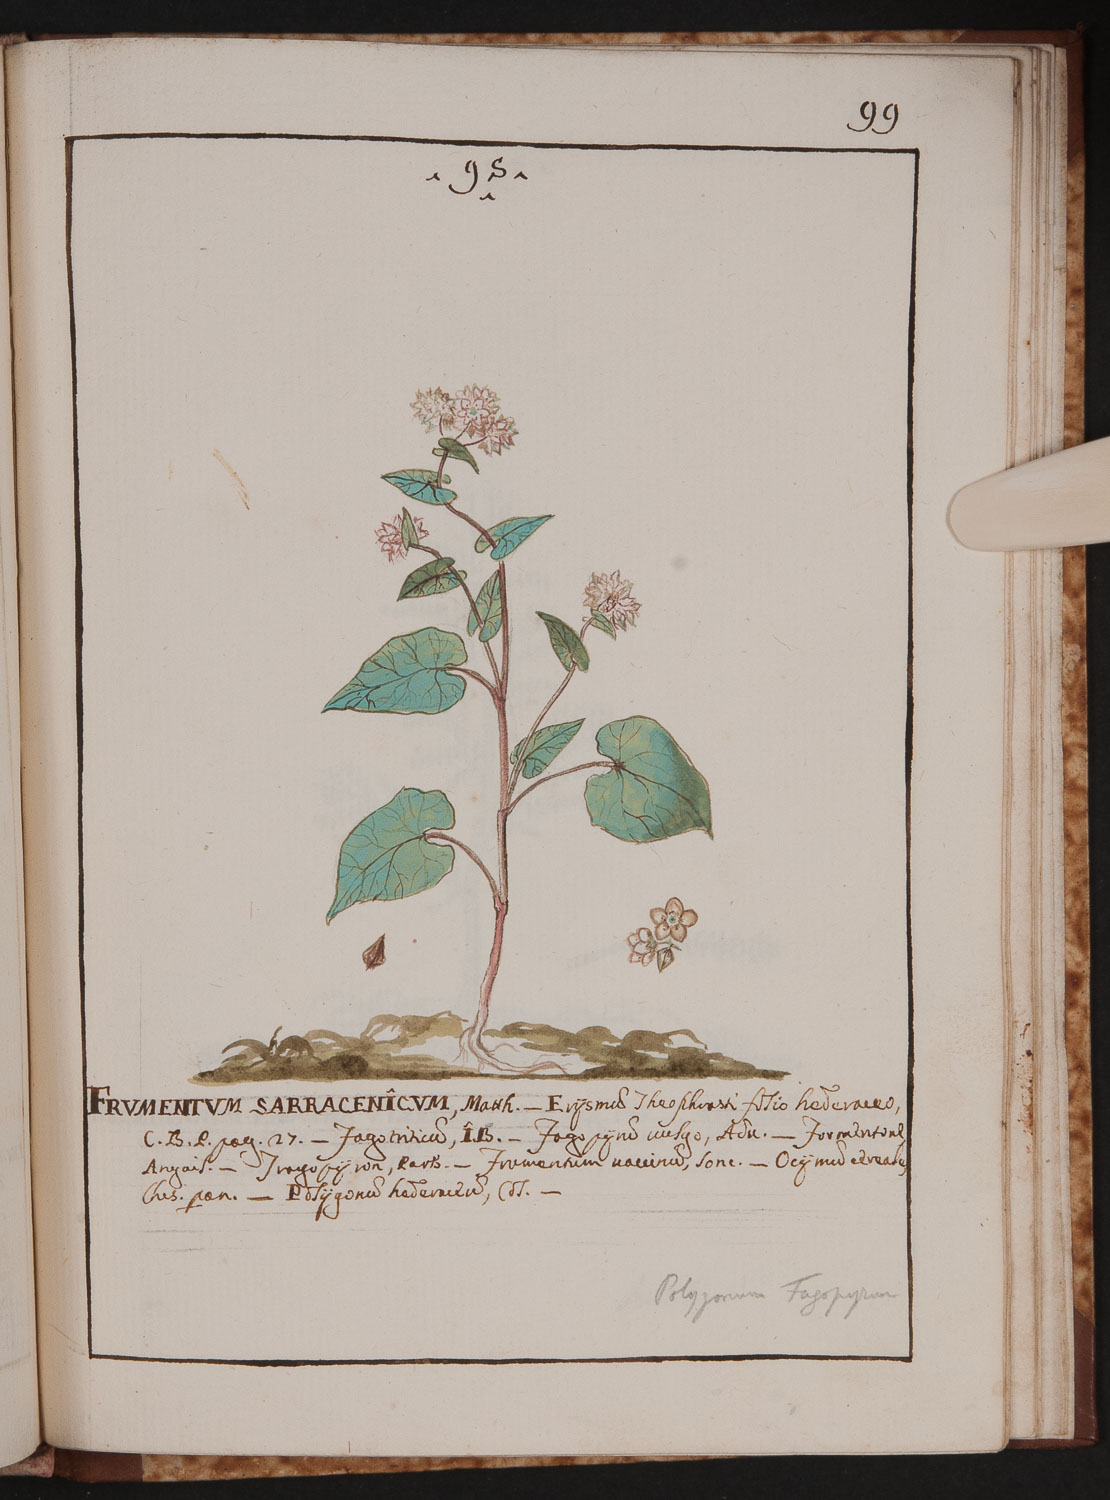 99
95
FRVMENTVM SARRACENÎCVM, Matth. — Erÿsmū Theophrasti folio hederaceo,
C. B. P. pag. 27. — Fagotriticū, I.B. — Fagopÿrū vulgo, Adu. — Formentone
Anguil. — Tragopÿron, Park. — Frumentum vaccinū, Lonc. — Ocÿmū cereale,
— Polÿgonū hederaceū, —
Polygonum Fagopyrum